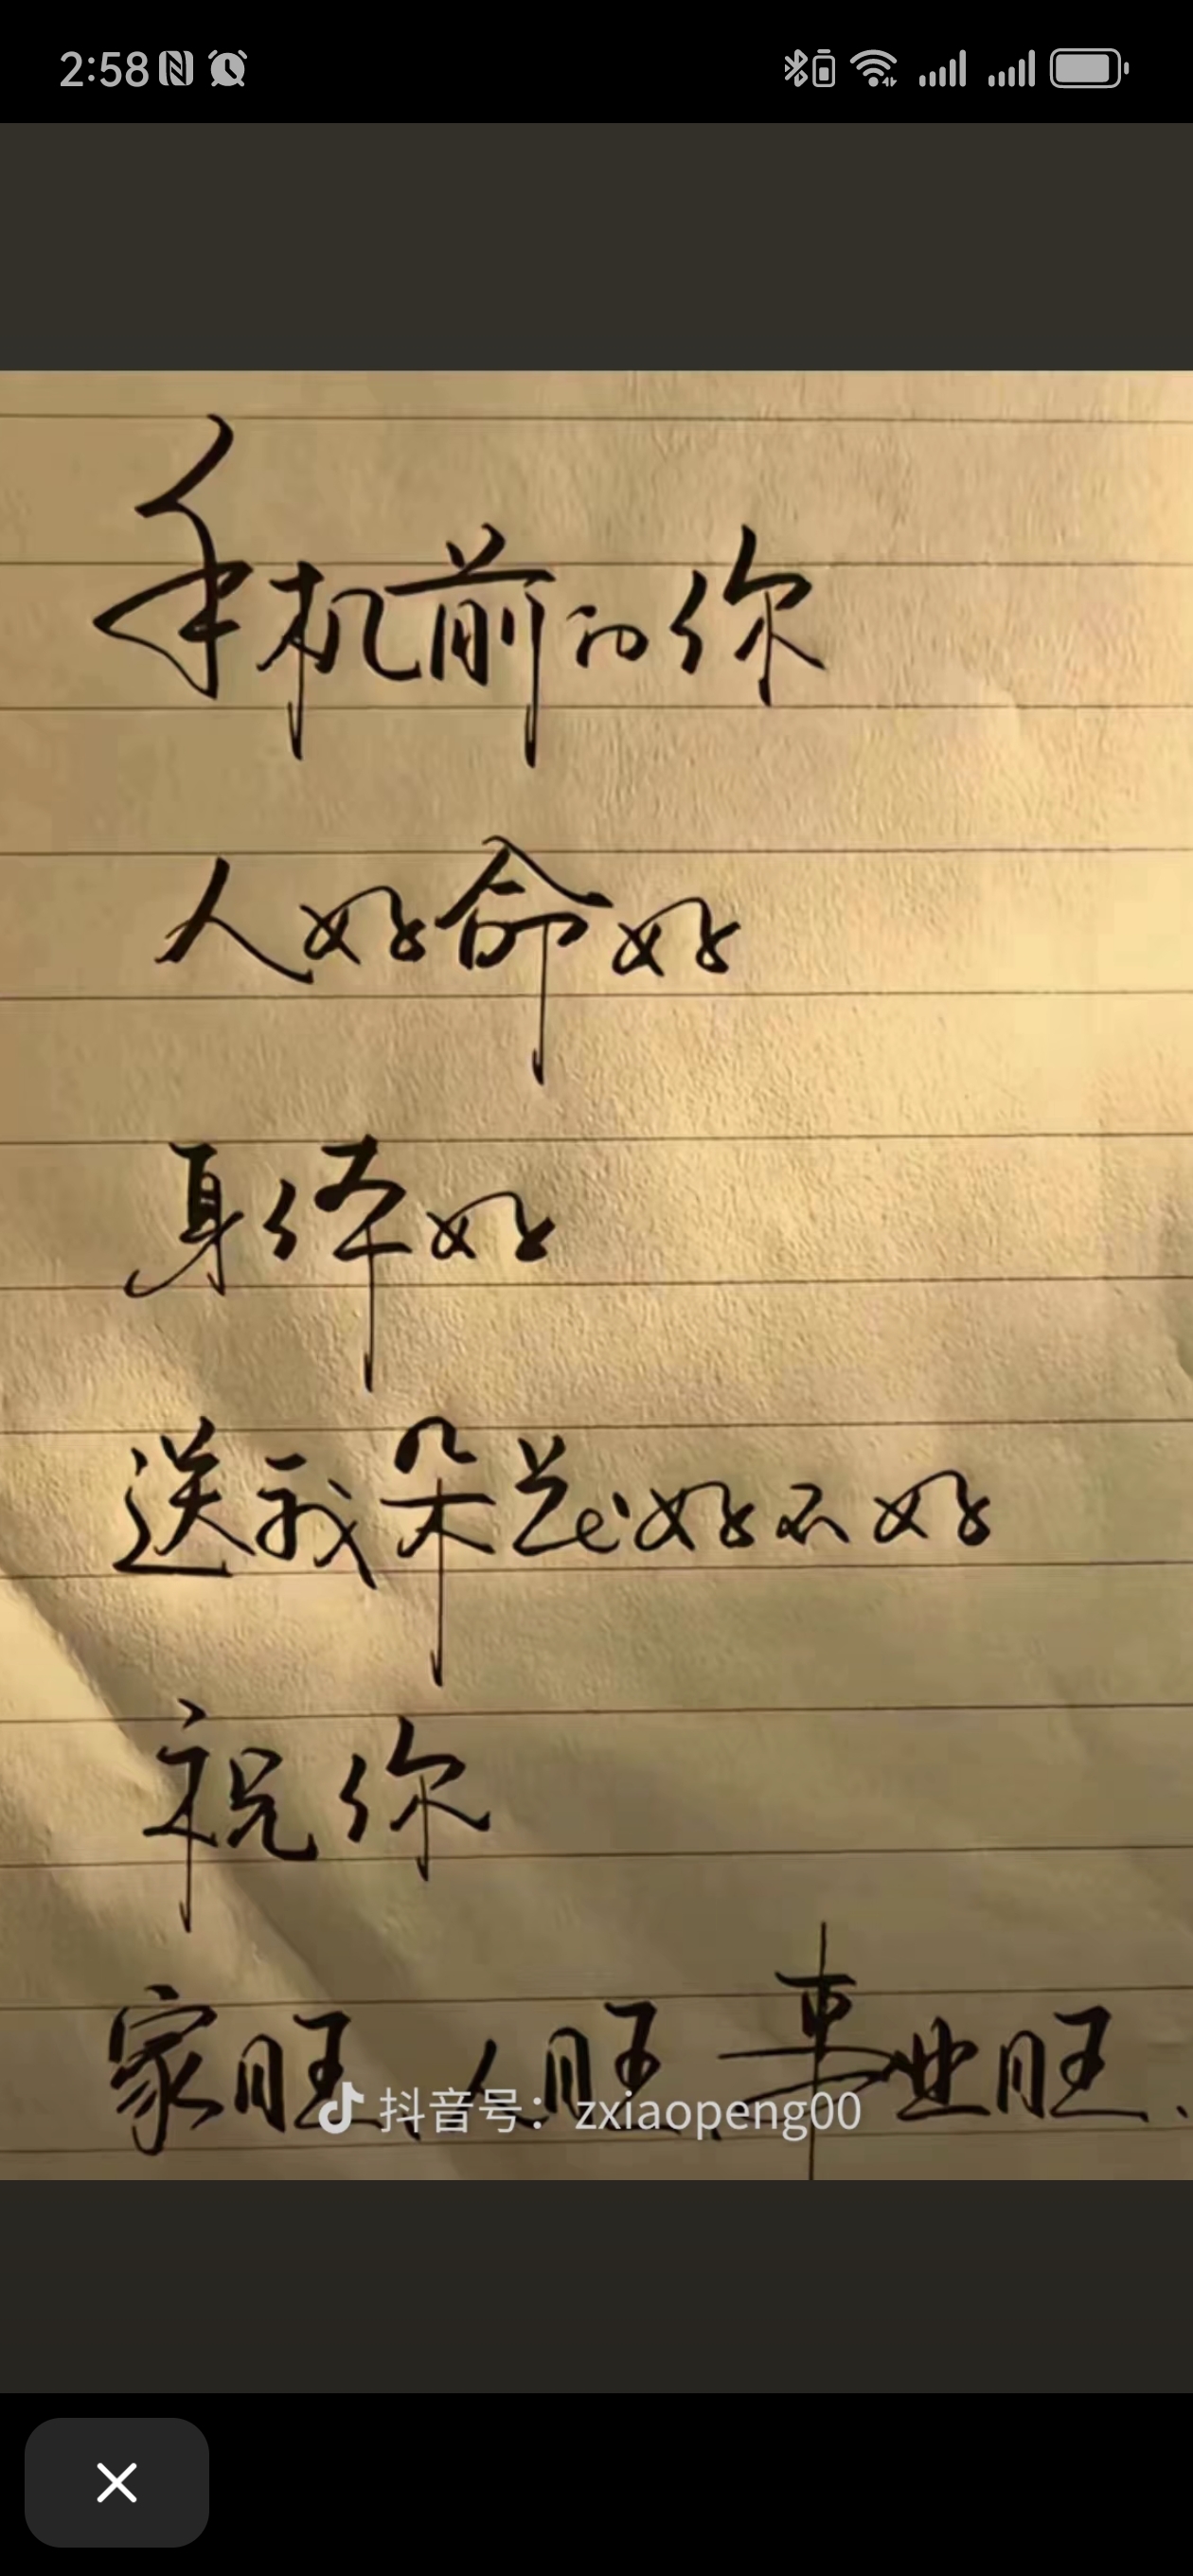 2:58
手机前的你
人好命好
身体好
送我朵花好不好
祝你
家旺、人旺、事业旺、
抖音号：zxiaopeng00